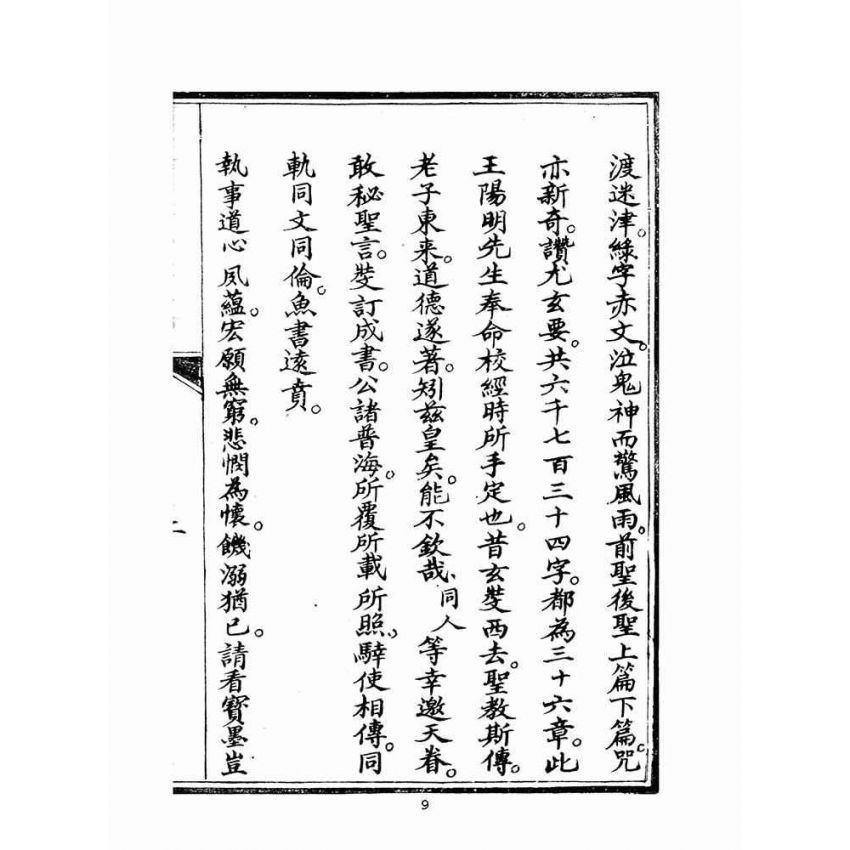 渡迷津。綠字赤文。泣鬼神而驚風雨。前聖後聖上篇下篇。咒
亦新奇。讚尤玄要。共六千七百三十四字。都為三十六章。此
王陽明先生奉命校經時所手定也。昔玄奘西去。聖教斯傳。
老子東来。道德遂著。矧茲皇矣。能不欽哉、同人等幸邀天眷。
敢秘聖言。爰訂成書。公諸普海。所覆所載所照。騂使相傳。同
軌同文同倫。魚書遠賁。
執事道心夙蘊。宏願無窮。悲憫為懷。饑溺猶己。請看寶墨豈
9